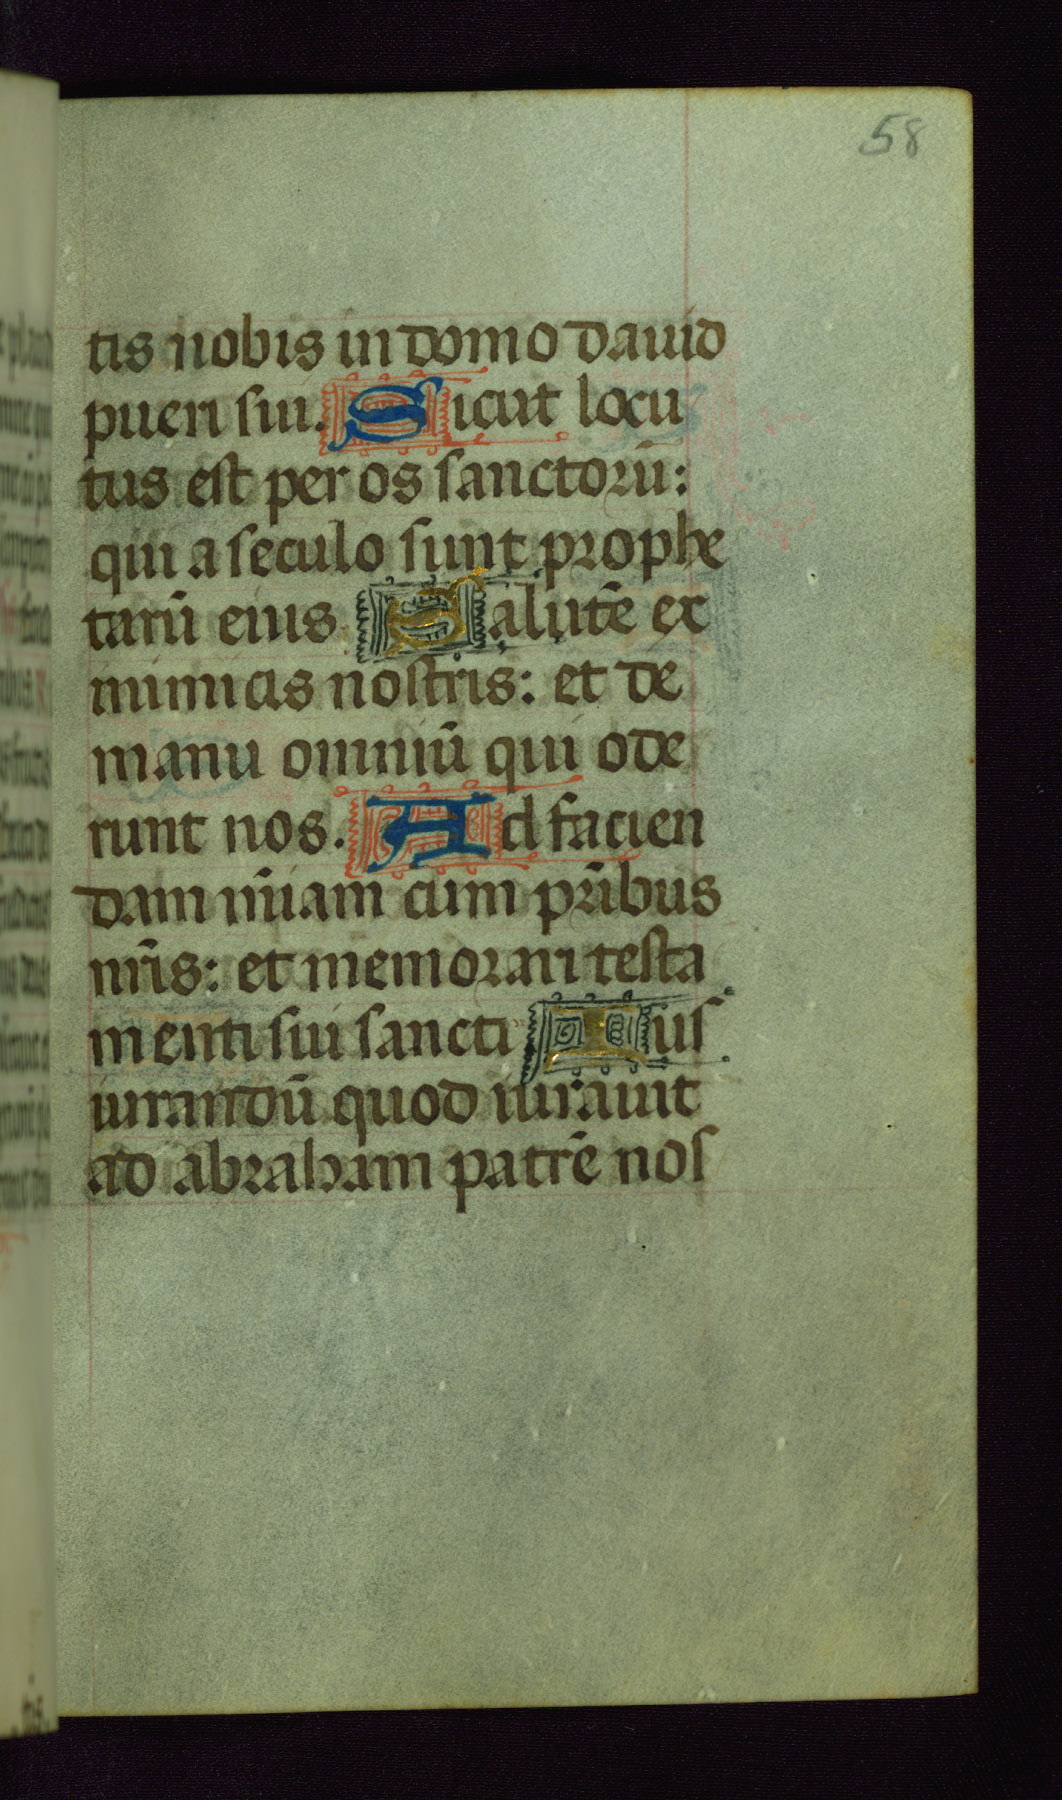 58
tis nobis in domo dauid
pueri sui. Sicut locu
tus est per os sanctorū:
qui a seculo sunt prophe
tarū eius. Salutē ex
inimicis nostris: et de
manu omniū qui ode
runt nos. Ad facien
dam mīam cum pr̄ibus
nr̄is: et memorari testa
menti sui sancti Ius
iurandū quod iurauit
ad abraham patrē nos